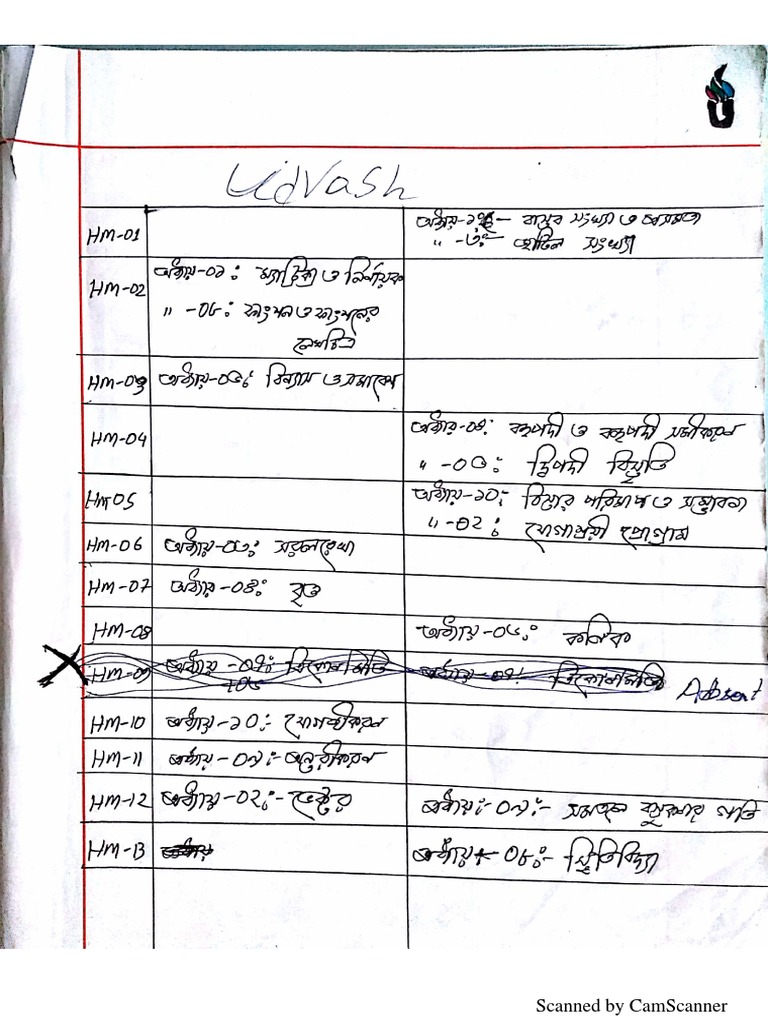 Udvash
HM-01 অধ্যায়-১ঃ- বাস্তব সংখ্যা ও অসমতা
" -৩ঃ- জটিল সংখ্যা
HM-02 অধ্যায়-০১ঃ ম্যাট্রিক্স ও নির্ণায়ক
" -০৮ঃ ফাংশন ও ফাংশনের
লেখচিত্র
HM-03 অধ্যায়-০৫ঃ বিন্যাস ও সমাবেশ
HM-04 অধ্যায়-০৪ঃ বহুপদী ও বহুপদী সমীকরণ
" -০৫ঃ দ্বিপদী বিস্তৃতি
HM05 অধ্যায়-১০ঃ বিস্তার পরিমাপ ও সম্ভাবনা
" -০২ঃ যোগাশ্রয়ী প্রোগ্রাম
HM-06 অধ্যায়-০৩ঃ সরলরেখা
HM-07 অধ্যায়-০৪ঃ বৃত্ত
HM-08 অধ্যায়-০৬ঃ কণিক
HM-09 অধ্যায়-০৭ঃ ত্রিকোণমিতি অধ্যায়-০৭ঃ ত্রিকোণমিতি Absent
HM-10 অধ্যায়-১০ঃ যোগজীকরণ
HM-11 অধ্যায়-০৯ঃ- অন্তরীকরণ
HM-12 অধ্যায়-০২ঃ- ভেক্টর অধ্যায়ঃ-০৯ঃ- সমতলে বস্তুকণার গতি
HM-13 অধ্যায় অধ্যায়-০৮ঃ- স্থিতিবিদ্যা
Scanned by CamScanner